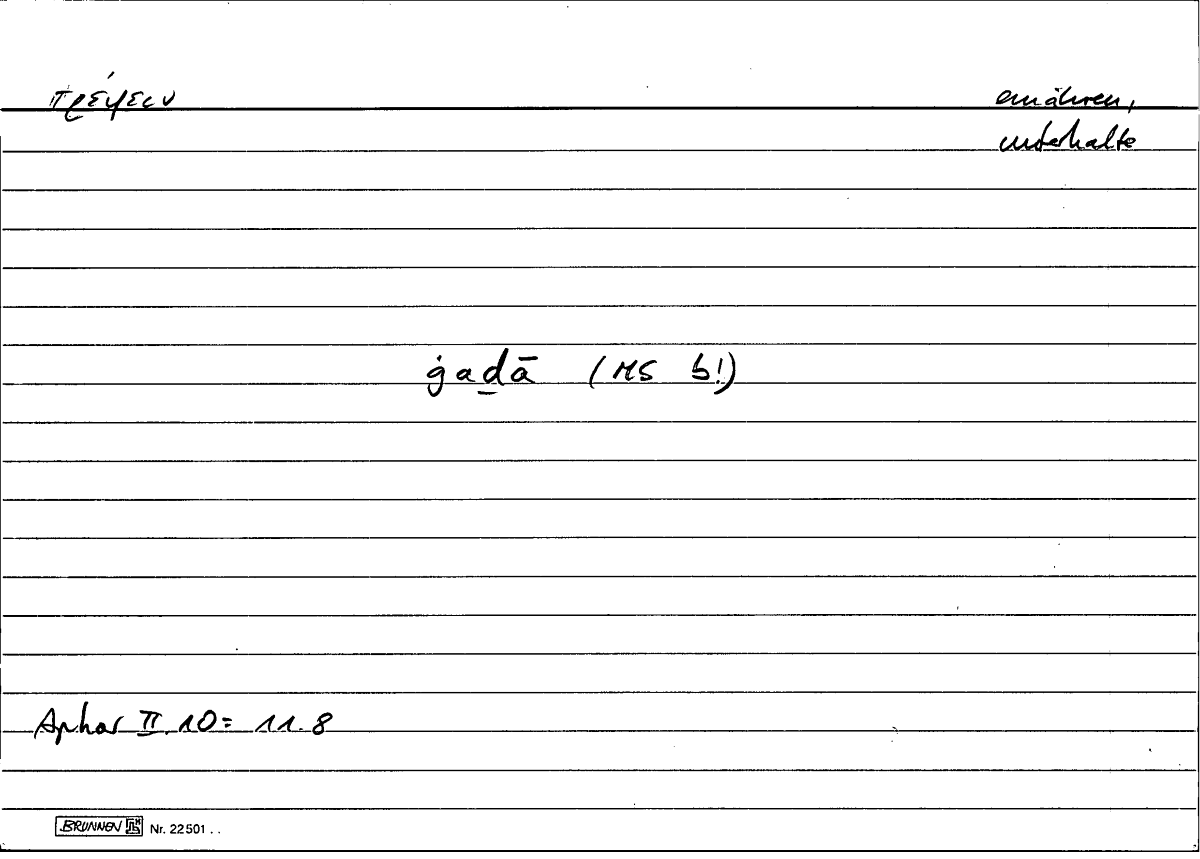 τρέφειν ernähren,
unterhalte
ġaḏā (MS b!)
Aphor II. 10 = 11. 8
BRUNNEN Nr. 22501 . .